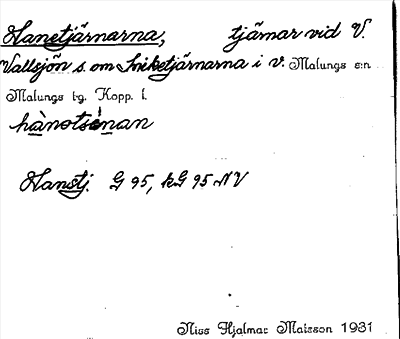 Hanetjärnarna, tjärnar vid V.
Vallsjön s. om Sniketjärnarna i V. Malungs s:n
Malungs tg. Kopp. l.
hànotsénan
Hanstj. G 95, kG 95 NV
Niss Hjalmar Matsson 1931